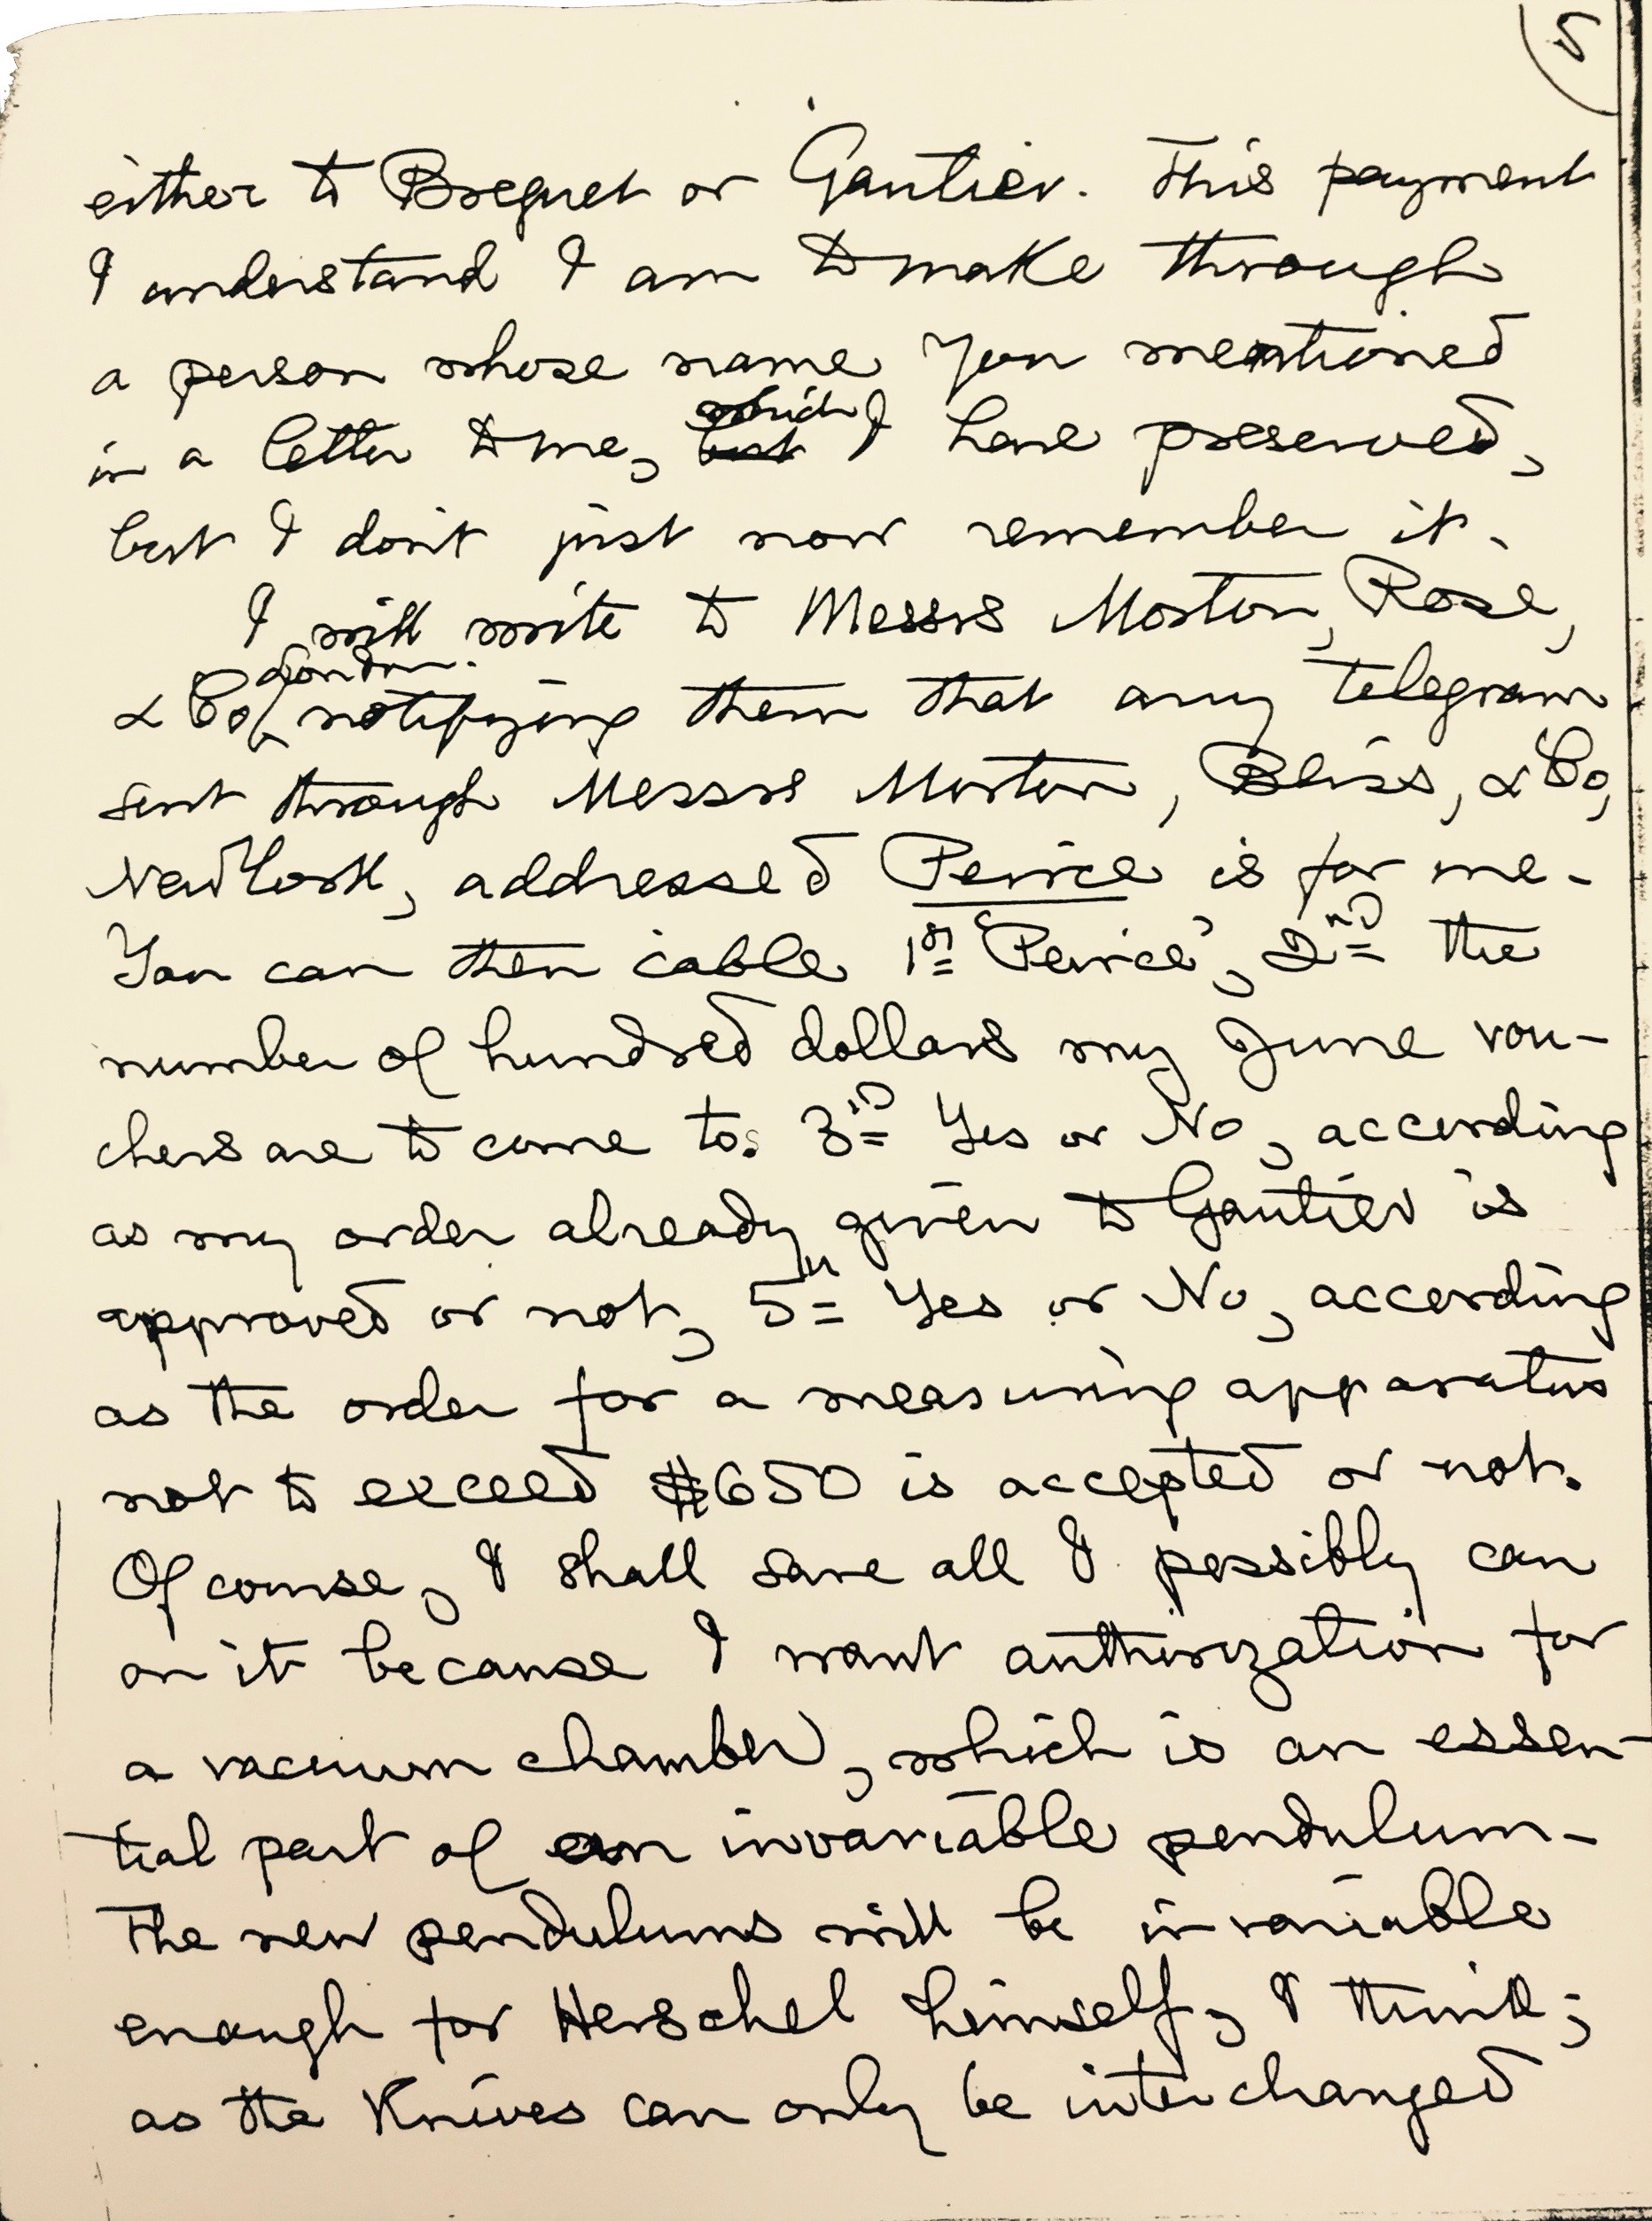 5
either to Breguet or Gautier. This payment
I understand I am to make through
a person whose name you mentioned
in a letter to me, but which I have preserved,
but I don't just now remember it.
I will write to Messrs Morton, Rose,
& Co, London. notifying them that any telegram
sent through Messrs Morton, Bliss, & Co,
New York, addressed Peirce is for me.
You can then cable 1st 'Peirce', 2nd the
number of hundred dollars my June vou-
chers are to come to. 3rd Yes or No, according
as my order already given to Gautier is
approved or not, 5th Yes or No, according
as the order for a measuring apparatus
not to exceed $650 is accepted or not.
Of course, I shall save all I possibly can
on it because I want authorization for
a vacuum chamber, which is an essen-
tial part of an invariable pendulum.
The new pendulums will be invariable
enough for Herschel himself, I think;
as the Knives can only be interchanged